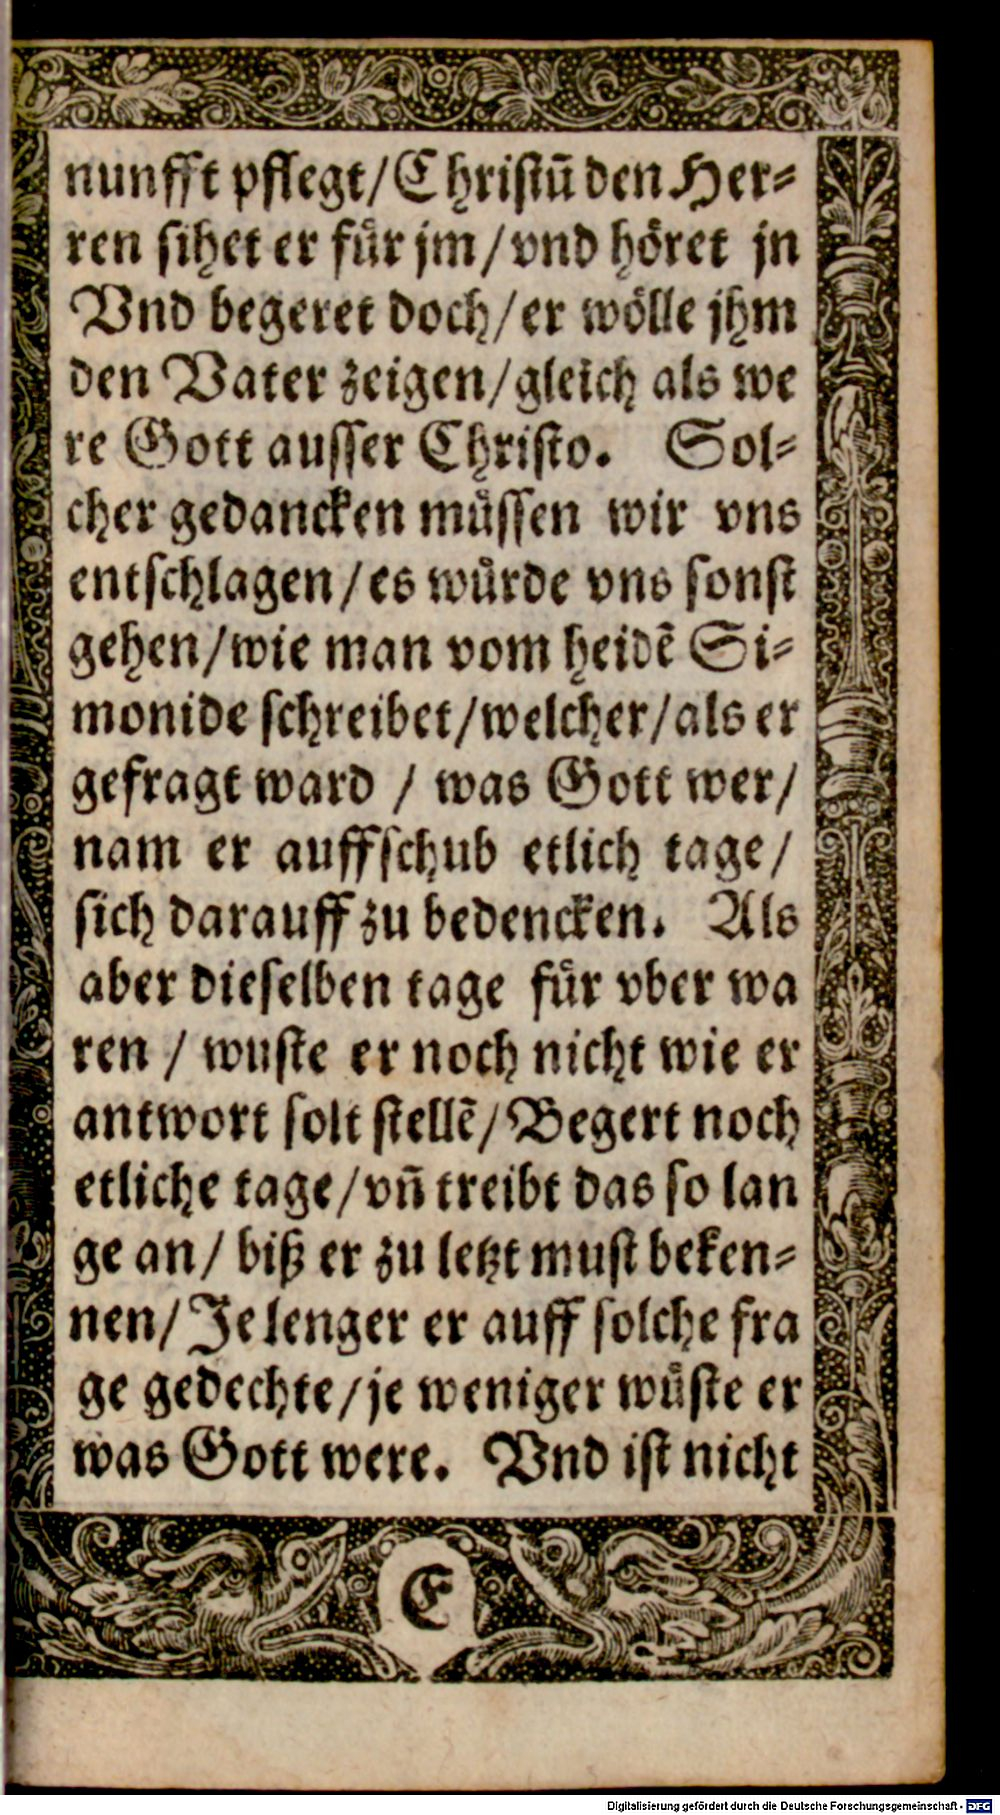 nunfft pflegt/Christū den Her⸗
ren sihet er fuͤr jm/vnd hoͤret jn
Vnd begeret doch/er woͤlle jhm
den Vater zeigen/gleich als we
re Gott ausser Christo. Sol⸗
cher gedancken muͤssen wir vns
entschlagen/es wuͤrde vns sonst
gehen/wie man vom heidē Si⸗
monide schreibet/welcher/als er
gefragt ward / was Gott wer/
nam er auffschub etlich tage/
sich darauff zu bedencken. Als
aber dieselben tage fuͤr vber wa
ren / wuste er noch nicht wie er
antwort solt stellē/Begert noch
etliche tage/vn̄ treibt das so lan
ge an/ biß er zu letzt must beken⸗
nen/Je lenger er auff solche fra
ge gedechte/je weniger wuͤste er
was Gott were. Vnd ist nicht
E
Digitalisierung gefördert durch die Deutsche Forschungsgemeinschaft - DFG